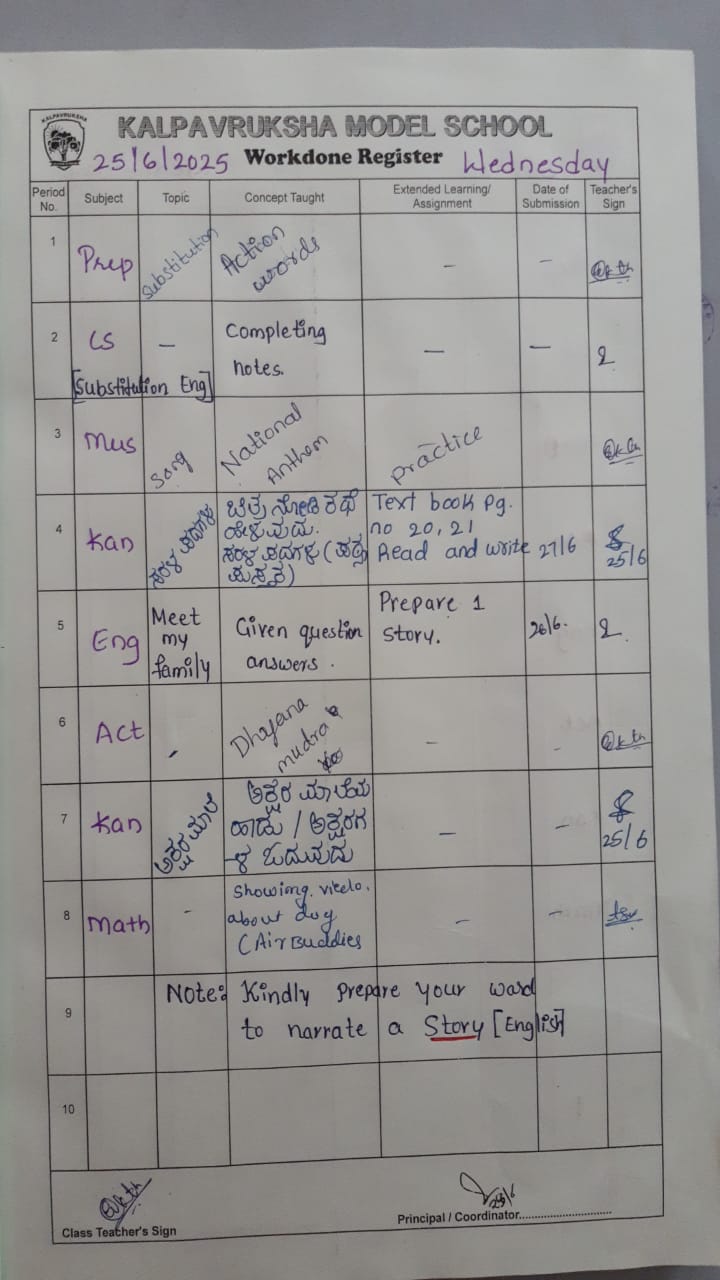 KALPAVRUKSHA
KALPAVRUKSHA MODEL SCHOOL
25/6/2025 Workdone Register Wednesday
Period No. Subject Topic Concept Taught Extended Learning/ Assignment Date of Submission Teacher's Sign
1 Prep Substitution Action words – –
2 CS – Completing notes. – –
[Substitution Eng]
3 Mus Song National Anthem practice
4 Kan ಸರಳ ಪದಗಳು ಚಿತ್ರ ನೋಡಿ ಕಥೆ Text book pg.
ಹೇಳುವುದು. no 20, 21
ಸರಳ ಪದಗಳು (ಪಠ್ಯ Read and write 27/6
ಪುಸ್ತಕ) 25/6
5 Eng Meet my family Given question answers. Prepare 1 Story. 26/6.
6 Act - Dhyana mudra – -
7 Kan ಅಕ್ಷರ ಮಾಲೆ ಅಕ್ಷರ ಮಾಲೆಯ
ಹಾಡು / ಅಕ್ಷರಗ
ಳ ಓದುವುದು – – 25/6
8 Math - Showing video.
about dog
(Air Buddies – –
9 Note: Kindly prepare your ward
to narrate a Story [English]
10
Class Teacher's Sign
Principal / Coordinator